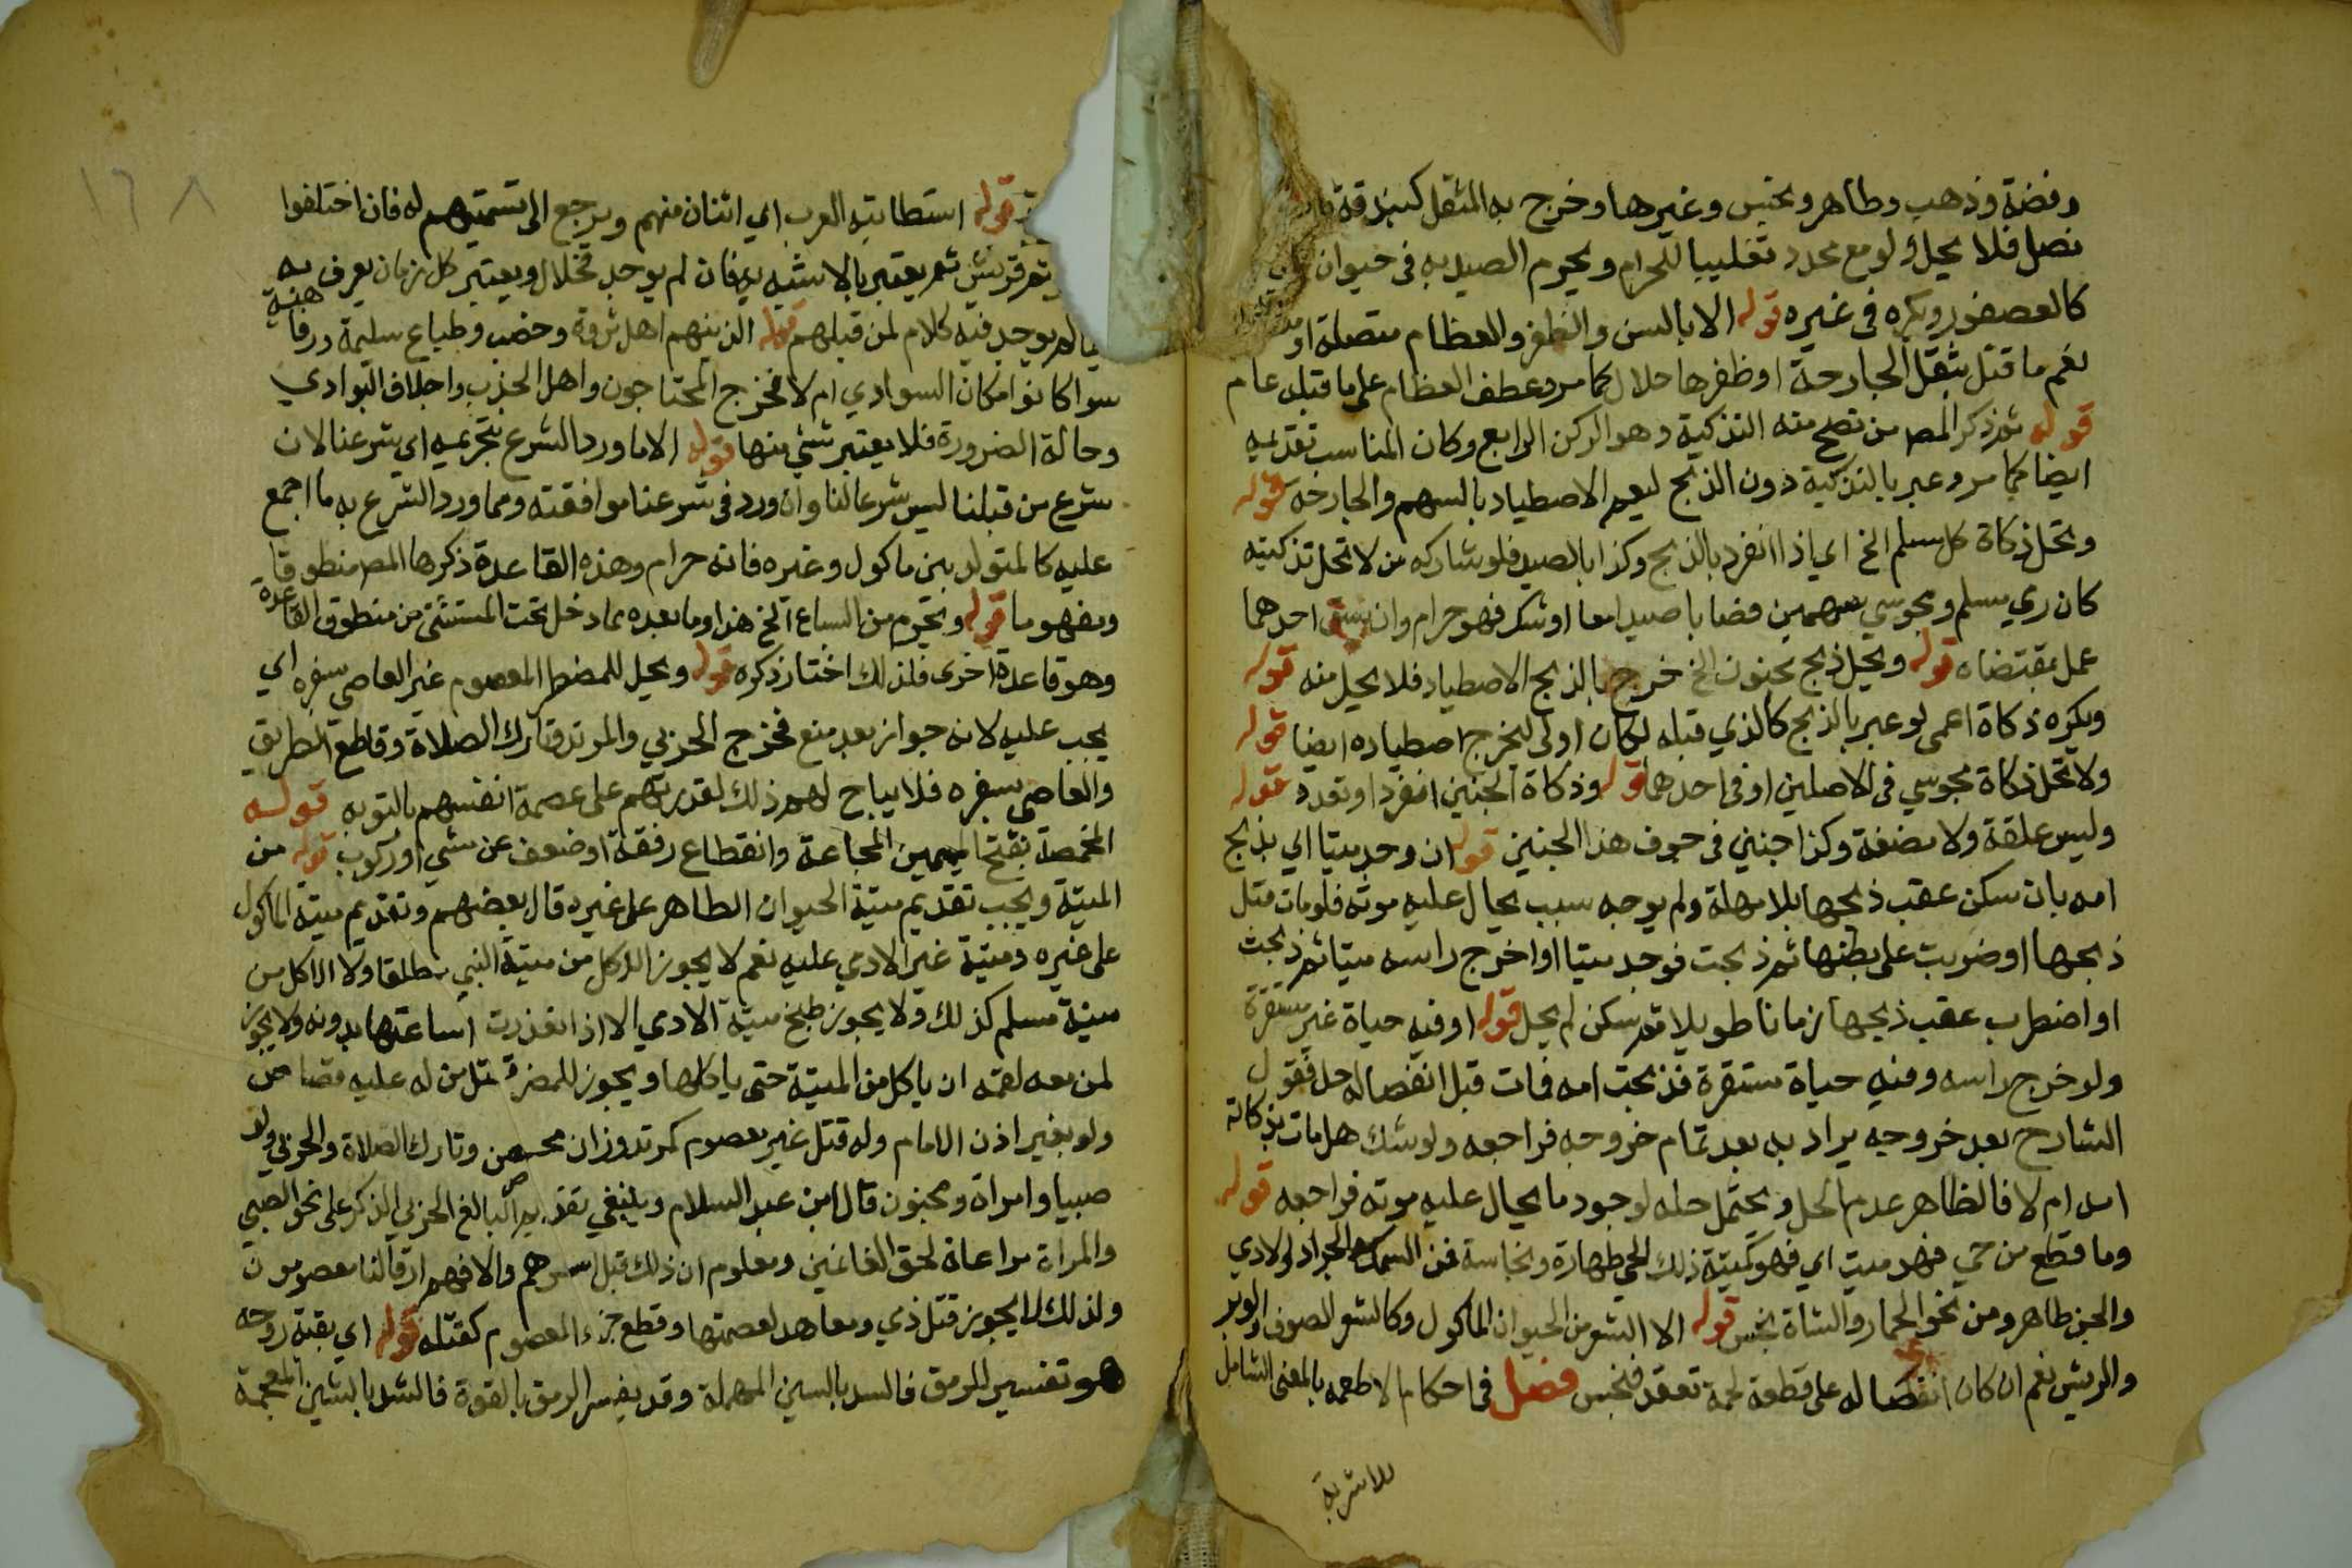 وفضة وذهب وطاهر ونجس وغيرها وخرج به المثقل كبندقة
نصل فلا يحل ولو مع محدد تغليبا للحرام ويحرم الصيد به في حيوان
كالعصفور ويكره في غيره قوله الا بالسن والظفر والعظام متصلة او
نعم ما قتل بثقل الجارحة او ظفرها حلال كما مر وعطف العظام على ما قبله عام
قوله ثم ذكر المص من تصلح منه التذكية وهو الركن الرابع وكان المناسب تقديمه
ايضا كما مر وعبر بالتذكية دون الذبح ليعم الاصطياد بالسهم والجارحة قوله
وتحل ذكاة كل مسلم الخ اي اذا انفرد بالذبح وكذا بالصيد فلو شاركه من لا تحل تذكيته
كان رمي مسلم ومجوسي سهمين فصابا صيدا معا او شك فهو حرام وان سبق احدهما
عمل بمقتضاه قوله ويحل ذبح مجنون الخ خرج بالذبح الاصطياد فلا يحل منه قوله
ويكره ذكاة اعمى لو عبر بالذبح كالذي قبله لكان اولى ليخرج اصطياده ايضا قوله
ولا تحل ذكاة مجوسي في الاصلين او في احدهما قوله وذكاة الجنين انفرد او تعدد قوله
وليس علقة ولا مضغة وكذا جنين في جوف هذا الجنين قوله ان وجد ميتا اي بذبح
امه بان سكن عقب ذبحها بلا مهلة ولم يوجد سبب يحال عليه موته فلو مات قبل
ذبحها او ضربت على بطنها ثم ذبحت فوجد ميتا او اخرج راسه ميتا ثم ذبحت
او اضطرب عقب ذبحها زمانا طويلا ثم سكن لم يحل قوله او فيه حياة غير مستقرة
ولو خرج راسه وفيه حياة مستقرة فذبحت امه فمات قبل انفصاله حل فقول
الشارح بعد خروجه يراد به بعد تمام خروجه فراجعه ولو شك هل مات بذكاة
امه ام لا فالظاهر عدم الحل ويحتمل حله لوجود ما يحال عليه موته فراجعه قوله
وما قطع من حي فهو ميت اي فهو كميتة ذلك الحي طهارة ونجاسة فمن السمك والجراد والادمي
والجن طاهر ومن نحو الحمار والشاة نجس قوله الا الشعر من الحيوان الماكول وكالشعر الصوف والوبر
والريش نعم ان كان انفصاله على قطعة لحمة تعقد فنجس فصل في احكام الاطعمة بالمعنى الشامل
للاشربة
١٦٨
قوله استطابته العرب اي اثنان منهم ويرجع الى تسميتهم له فان اختلفوا
قريش ثم يعتبر بالاشبه به فان لم يوجد فحلال ويعتبر كل زمان يعرف به
لم يوجد فيه كلام لمن قبلهم قوله الذين هم اهل ثروة وخصب وطباع سليمة ورفاهية
سوا كانوا مكان السوادي ام لا فخرج المحتاجون واهل الجذب واجلاف البوادي
وحالة الضرورة فلا يعتبر شي منها قوله الا ما ورد الشرع بتحريمه اي شرعنا لان
شرع من قبلنا ليس شرعا لنا وان ورد في شرعنا موافقته ومما ورد الشرع به ما اجمع
عليه كالمتولد بين ماكول وغيره فانه حرام وهذه القاعدة ذكرها المص منطوقا
ومفهوما قوله ويحرم من السباع الخ هذا وما بعده مما دخل تحت المستثنى من منطوق القاعدة
وهو قاعدة اخرى فلذلك اختار ذكره قوله ويحل للمضطر المعصوم غير العاصي بسفره اي
يجب عليه لانه جواز بعد منع فخرج الحربي والمرتد وتارك الصلاة وقاطع الطريق
والعاصي بسفره فلا يباح لهم ذلك لقدرتهم على عصمة انفسهم بالتوبه قوله
المخمصة بفتح الميمين المجاعة وانقطاع رفقة او ضعف عن مشي او ركوب قوله من
الميتة ويجب تقديم ميتة الحيوان الطاهر على غيره قال بعضهم وتقديم ميتة الماكول
على غيره وميتة غير الادمي عليه نعم لا يجوز الاكل من ميتة النبي مطلقا ولا الاكل من
ميتة مسلم كذلك ولا يجوز طبخ ميتة الادمي الا اذا تعذرت اساغتها بدونه ولا يجوز
لمن معه لقمة ان ياكل من الميتة حتى ياكلها ويجوز للمضر قتل من له عليه قصاص
ولو بغير اذن الامام وله قتل غير معصوم كمرتد وزان محصن وتارك الصلاة والحربي ولو
صبيا وامراة ومجنون قال ابن عبد السلام وينبغي تقديم البالغ الحربي الذكر على نحو الصبي
والمراة مراعاة لحق الغانمين ومعلوم ان ذلك قبل اسرهم والا فهم ارقا لنا معصومون
ولذلك لا يجوز قتل ذمي ومعاهد لعصمتها وقطع جزء المعصوم كقتله قوله اي بقية روحه
هو تفسير للرمق فالسد بالسين المهملة وقد يفسر الرمق بالقوة فالشد بالشين المعجمة